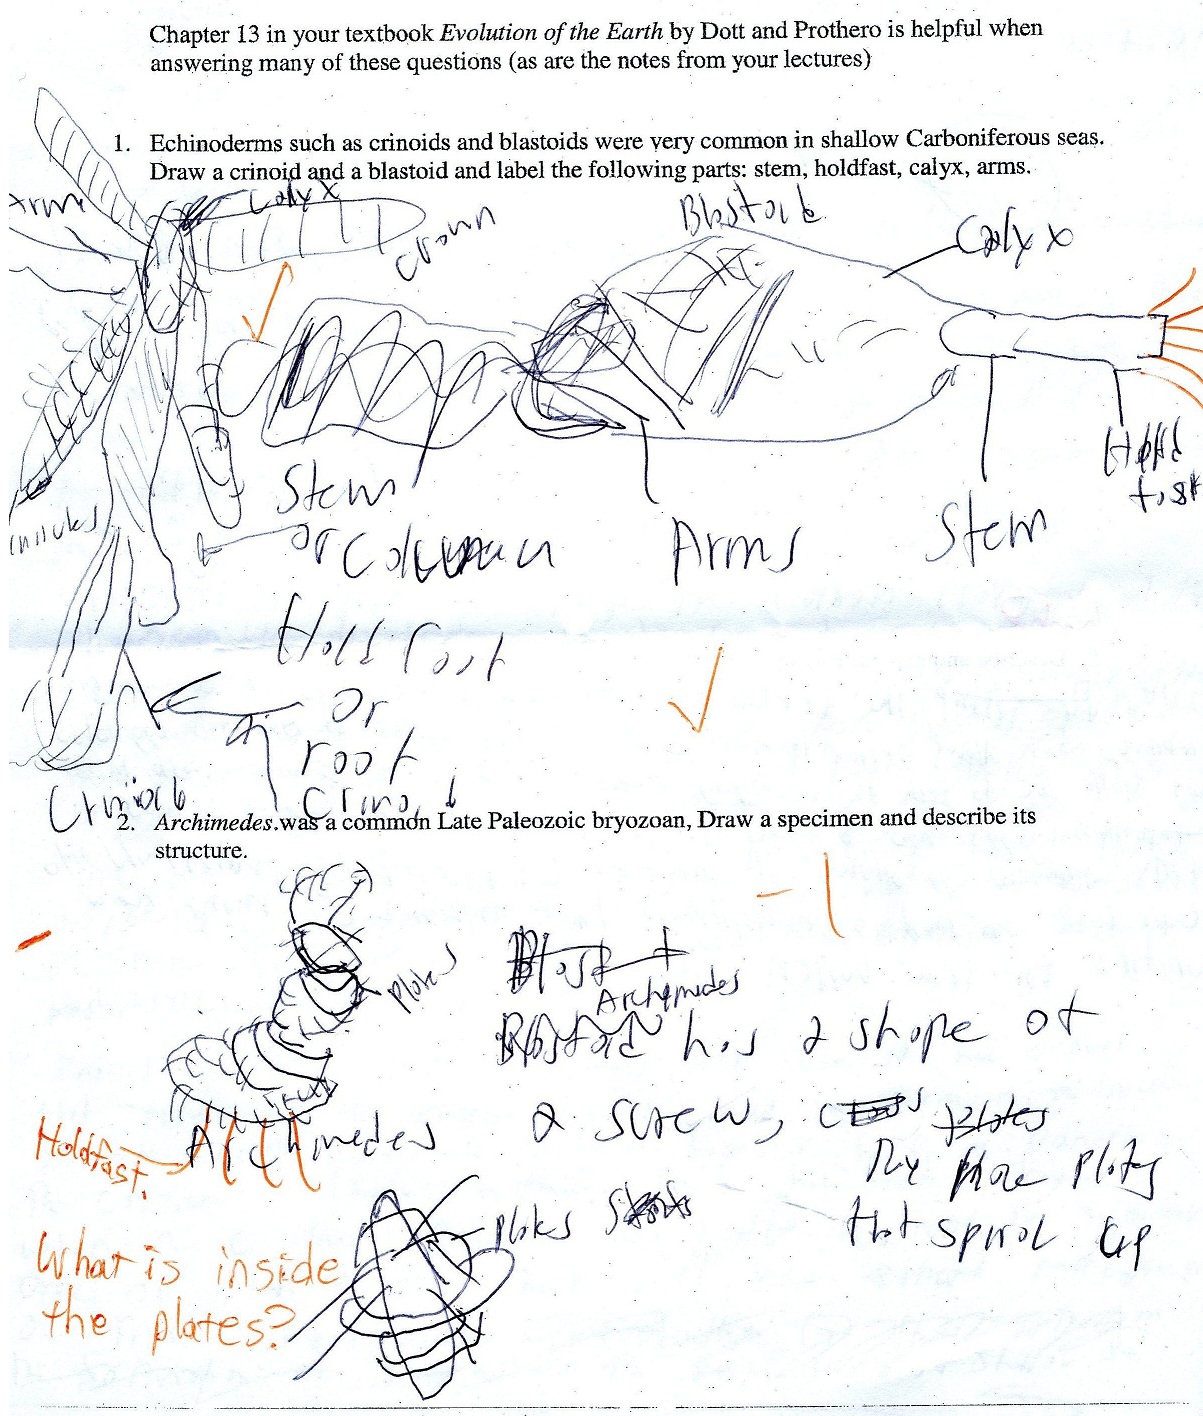 Chapter 13 in your textbook Evolution of the Earth by Dott and Prothero is helpful when
answering many of these questions (as are the notes from your lectures)
1. Echinoderms such as crinoids and blastoids were very common in shallow Carboniferous seas.
Draw a crinoid and a blastoid and label the following parts: stem, holdfast, calyx, arms.
Arm
Calyx
Crown
Blastoid
Calyx
Stem
or Column
Arms
Stem
Hold
fast
Hold foot
or
root
Crinoid
Crinoid
2. Archimedes.was a common Late Paleozoic bryozoan, Draw a specimen and describe its
structure.
-1
Plates
Archimedes
has a shape of
a screw,
They have Plates
that spiral up
Holdfast.
Archimedes
Plates
What is inside
the plates?